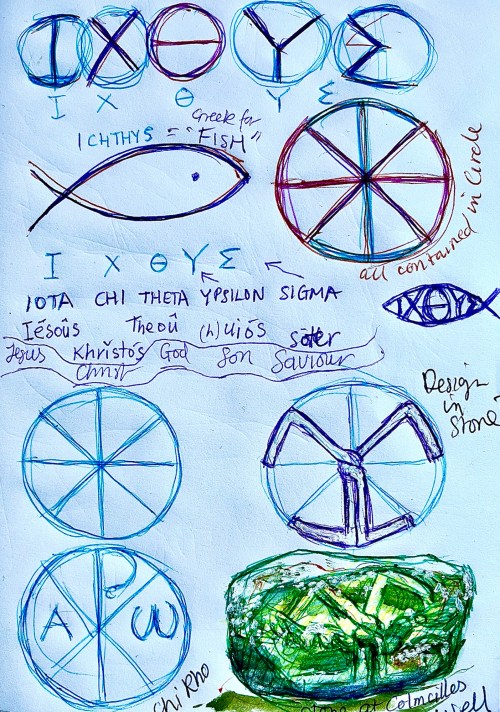 Ι Χ Θ Υ Σ
Ι Χ Θ Υ Σ
Greek for
ICHTHYS = "FISH"
all contained in Circle
Ι Χ Θ Υ Σ
IOTA CHI THETA YPSILON SIGMA
ΙΧΘΥΣ
Iésoûs Theoû (h)uiós sōtér
Jesus Khristós God Son Saviour
Christ
Design
in
Stone
A ω
Chi Rho
stone at Colmcilles
well